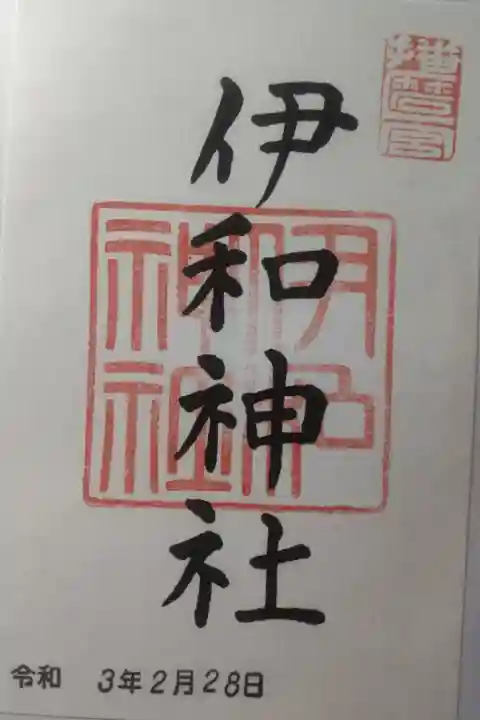 播磨一宮
伊和神社
伊和
神社
令和 3年2月28日